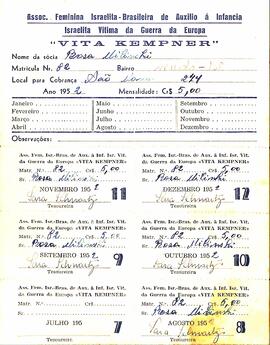 Assoc. Feminina Israelita-Brasileira de Auxilio á Infancia
Israelita Vítima da Guerra da Europa
"VITA KEMPNER"
Nome da sócia Rosa Milinski
Matrícula N.º 82 Bairro
Local para Cobrança São 244
Ano 1952 Mensalidade: Cr$ 5,00
Janeiro Maio Setembro
Fevereiro Junho Outubro
Março Julho Novembro
Abril Agosto Dezembro
Observações:
Ass. Fem. Isr.-Bras. de Aux. á Inf. Isr. Vit. da Guerra da Europa «VITA KEMPNER»
Matr. N.º 82 Cr$ 5,00
Sr. Rosa Milinski
NOVEMBRO 1952
Sara Schwartz
Tesoureira
11
Ass. Fem. Isr.-Bras. de Aux. á Inf. Isr. Vit. da Guerra da Europa «VITA KEMPNER»
Matr. N.º 82 Cr$ 5,00
Sr. Rosa Milinski
DEZEMBRO 1952
Sara Schwartz
Tesoureira
12
Ass. Fem. Isr.-Bras. de Aux. á Inf. Isr. Vit. da Guerra da Europa «VITA KEMPNER»
Matr. N.º 82 Cr$ 5,00
Sr. Rosa Milinski
SETEMBRO 1952
Sara Schwartz
Tesoureira
9
Ass. Fem. Isr.-Bras. de Aux. á Inf. Isr. Vit. da Guerra da Europa «VITA KEMPNER»
Matr. N.º 82 Cr$ 5,00
Sr. Rosa Milinski
OUTUBRO 1952
Sara Schwartz
Tesoureira
10
Ass. Fem. Isr.-Bras. de Aux. á Inf. Isr. Vit. da Guerra da Europa «VITA KEMPNER»
Matr. N.º 82 Cr$ 5,00
Sr. Rosa Milinski
JULHO 195
Tesoureira
7
Ass. Fem. Isr.-Bras. de Aux. á Inf. Isr. Vit. da Guerra da Europa «VITA KEMPNER»
Matr. N.º 82 Cr$ 5,00
Sr. Rosa Milinski
AGOSTO 195
Sara Schwartz
Tesoureira
8